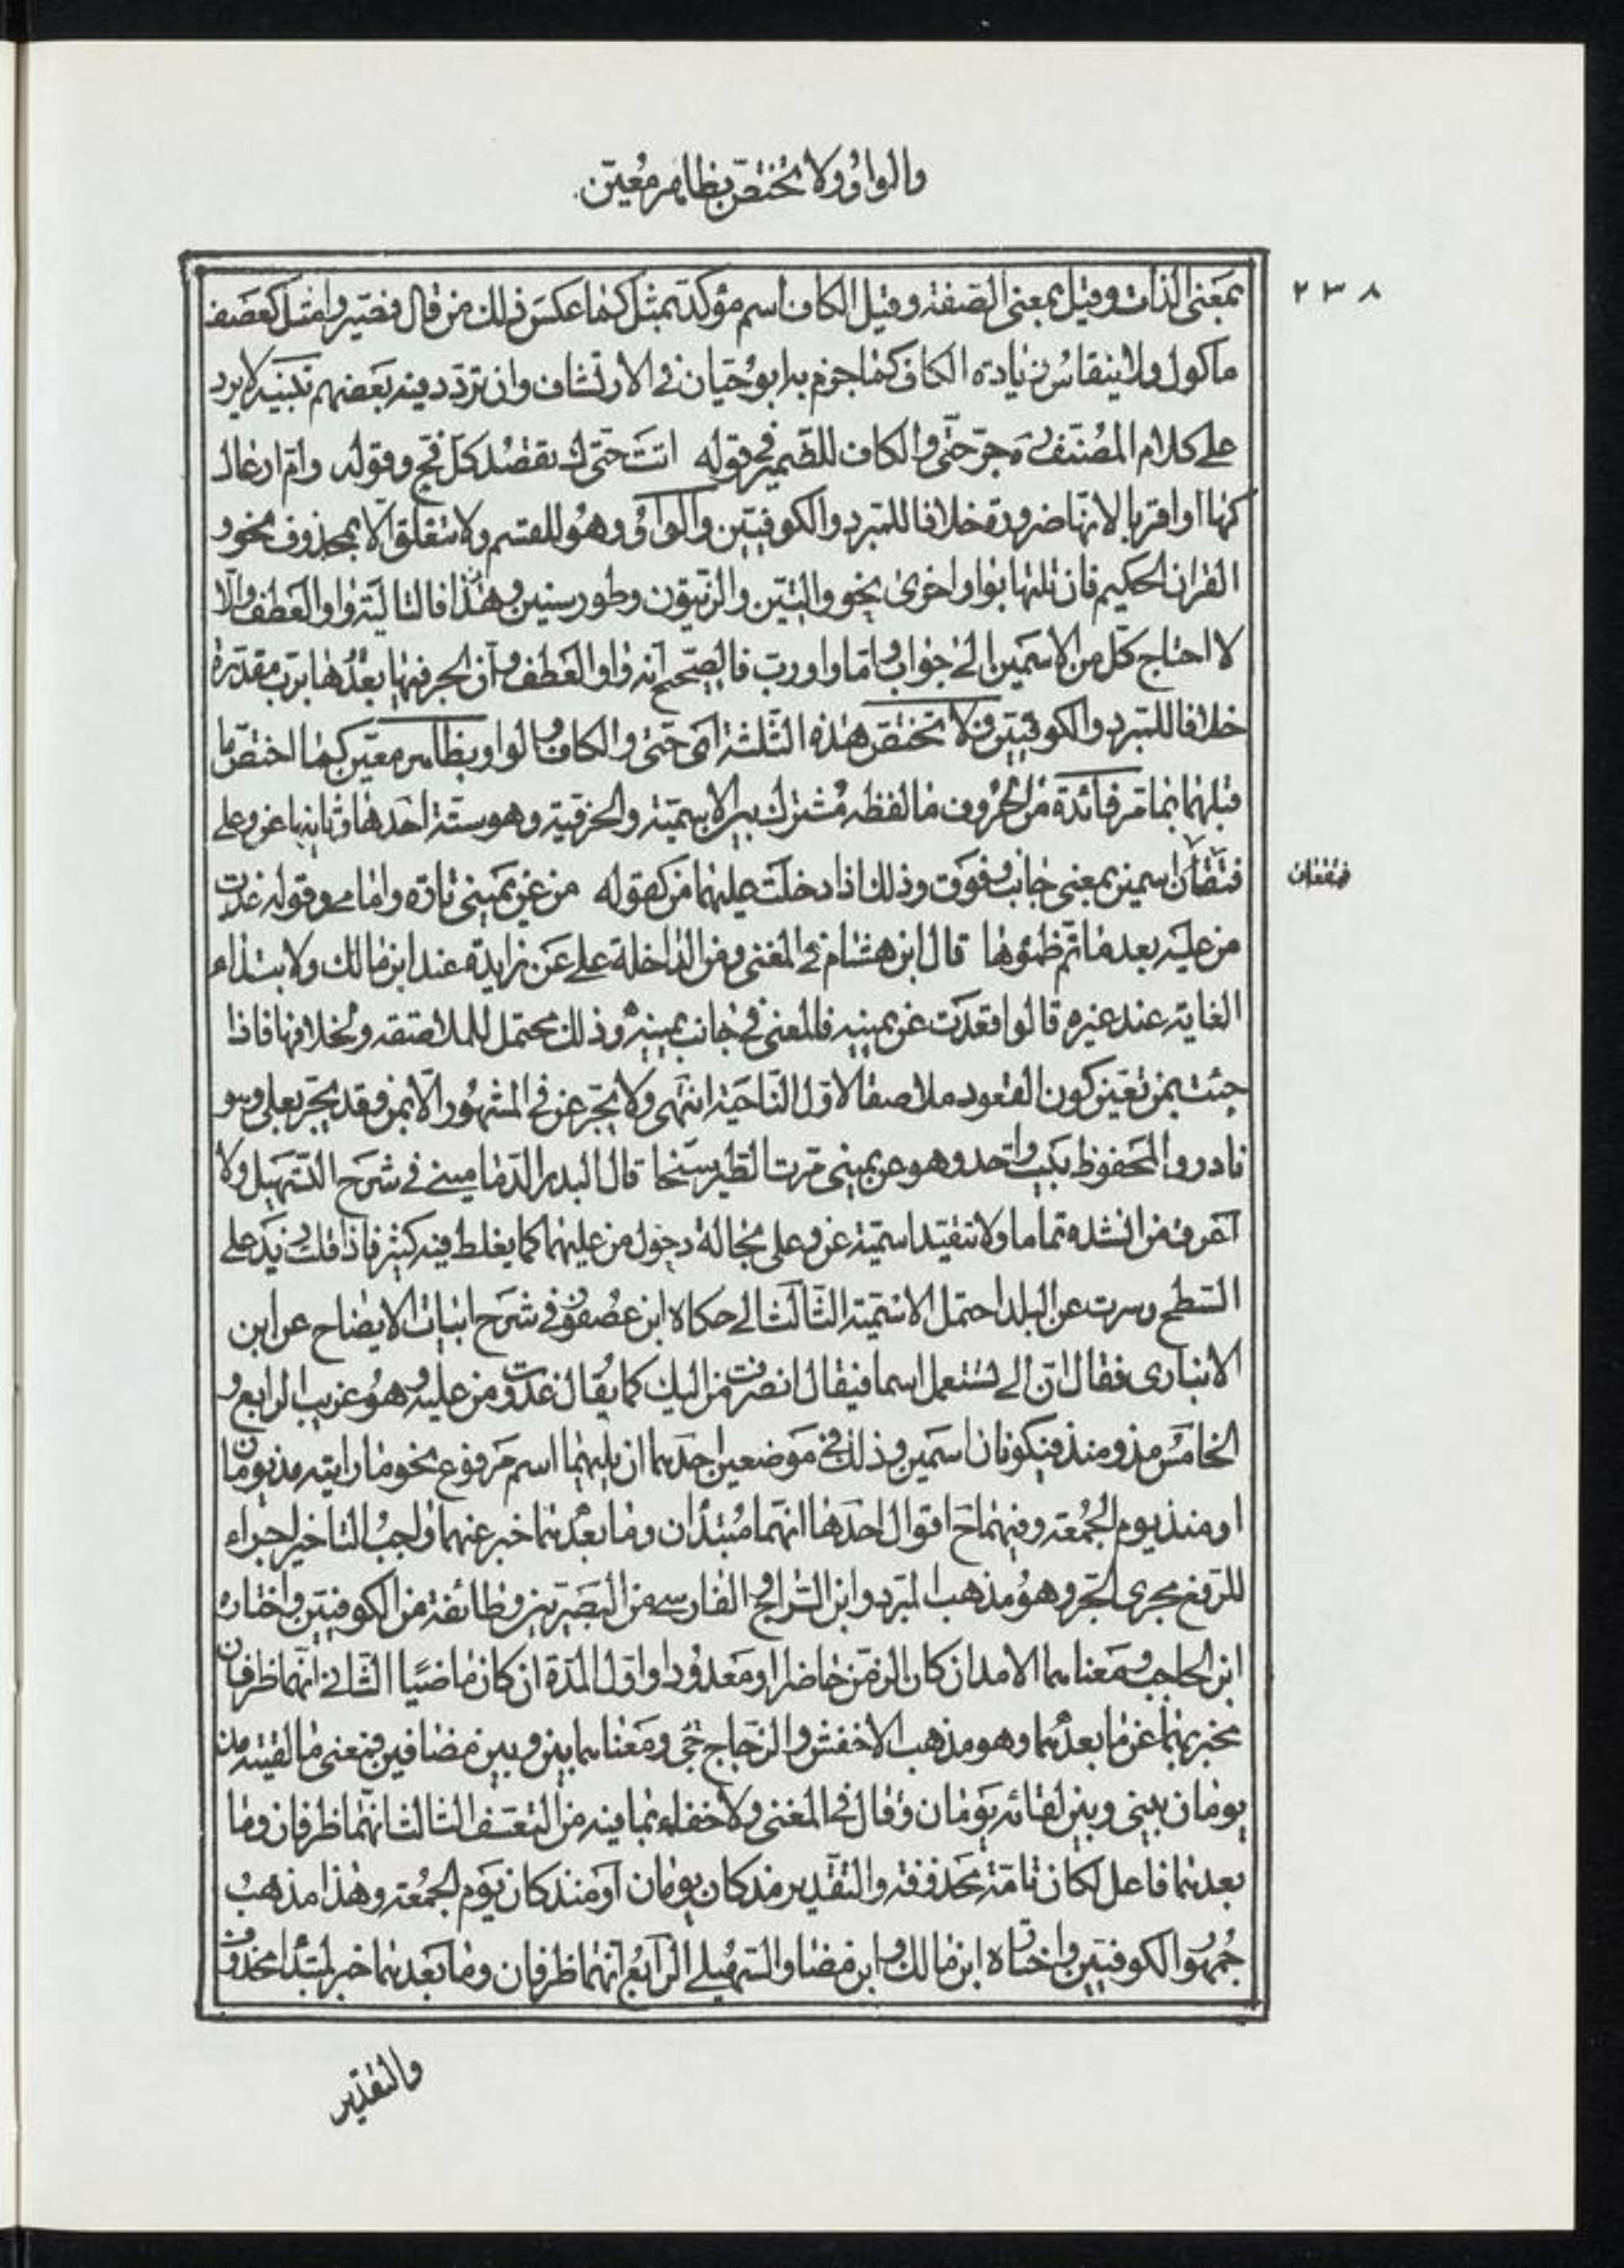 والواو ولا يختص بظاهر معين
٢٣٨
بمعنى الذات وقيل بمعنى الصفة وقيل الكاف اسم مؤكد بمثل كما عكس ذلك من قال فصيروا مثل كعصف
ماكول ولا ينقاس زيادة الكاف كما جزم به ابو حيان في الارتشاف وان تردد فيه بعضهم تنبيه لا يرد
على كلام المصنف جر حتى والكاف للضمير في قوله اتت حتاك تقصد كل فج وقوله وام اوعال
كها او اقربا لانها ضرورة خلافا للمبرد والكوفيين والواو وهو للقسم ولا تتعلق الا بمحذوف نحو و
القران الحكيم فان تلتها بواو اخرى نحو والتين والزيتون وطور سينين وهذا فالتالية واو العطف والا
لا احتاج كل من الاسمين الى جواب واما واو رب فالصحيح انه واو العطف وان الجر فيها بعدها برب مقدرة
خلافا للمبرد والكوفيين ولا تختص هذه الثلثة اى حتى والكاف والواو بظاهر معين كما اختص ما
قبلهما بما مر فائدة من الحروف ما لفظه مشترك بين الاسمية والحرفية وهو ستة احدها وثانيها عن وعلى
فتقعان اسمين بمعنى جانب وفوق وذلك اذا دخلت عليهما من كقوله من عن يمينى تارة وامامى وقوله غدت
فتقعان
من عليه بعد ما تم ظمئوها قال ابن هشام في المغنى ومن الداخلة على عن زايدة عند ابن مالك ولابتداء
الغاية عند غيره قالوا فقعدت عن يمينه فالمعنى في جانب يمينه وذلك محتمل للملاصقة ولخلافها فاذا
جئت بمن تعين كون القعود ملاصقا لاول الناحية انتهى ولا يجر عن في المشهور الا بمن وقد يجر بعلى وهو
نادر والمحفوظ بيت واحد وهو عن يمينى مرت الطير سنحا قال البدر الدمامينى في شرح التسهيل ولا
اعرف من انشده تماما ولا تتقيد اسمية عن وعلى بحالة دخول من عليهما كما يغلط فيه كثير فاذا قلت زيد على
السطح وسرت عن البلد احتمل الاسمية الثالث الى حكاه ابن عصفور في شرح ابيات الايضاح عن ابن
الانبارى فقال ان الى تستعمل اسما فيقال انصرفت من اليك كما يقال غدوت من عليه وهو غريب الرابع و
الخامس مذ ومنذ فيكونان اسمين وذلك في موضعين احدهما ان يليهما اسم مرفوع نحو ما رايته مذ يومان
او منذ يوم الجمعة وفيهما ح اقوال احدها انهما مبتدان وما بعدهما خبر عنهما واجب التاخير اجراء
للرفع مجرى الجر وهو مذهب المبرد وابن السراج والفارسى من البصريين وطائفة من الكوفيين واختاره
ابن الحاجب ومعناهما الامد ان كان الزمن حاضرا او معدودا واول المدة ان كان ماضيا الثانى انهما ظرفان
مخبر بهما عن ما بعدهما وهو مذهب الاخفش والزجاج جى ومعناهما بين وبين مضافين فمعنى ما لقيته مذ
يومان بينى وبين لقائه يومان وقال في المغنى ولا خفاء بما فيه من التعسف الثالث انهما ظرفان وما
بعدهما فاعل لكان تامة محذوفة والتقدير مذ كان يومان او منذ كان يوم الجمعة وهذا مذهب
جمهور الكوفيين واختاره ابن مالك وابن مضا والسهيلى الرابع انهما ظرفان وما بعدهما خبر لمبتدا محذوف
والتقدير